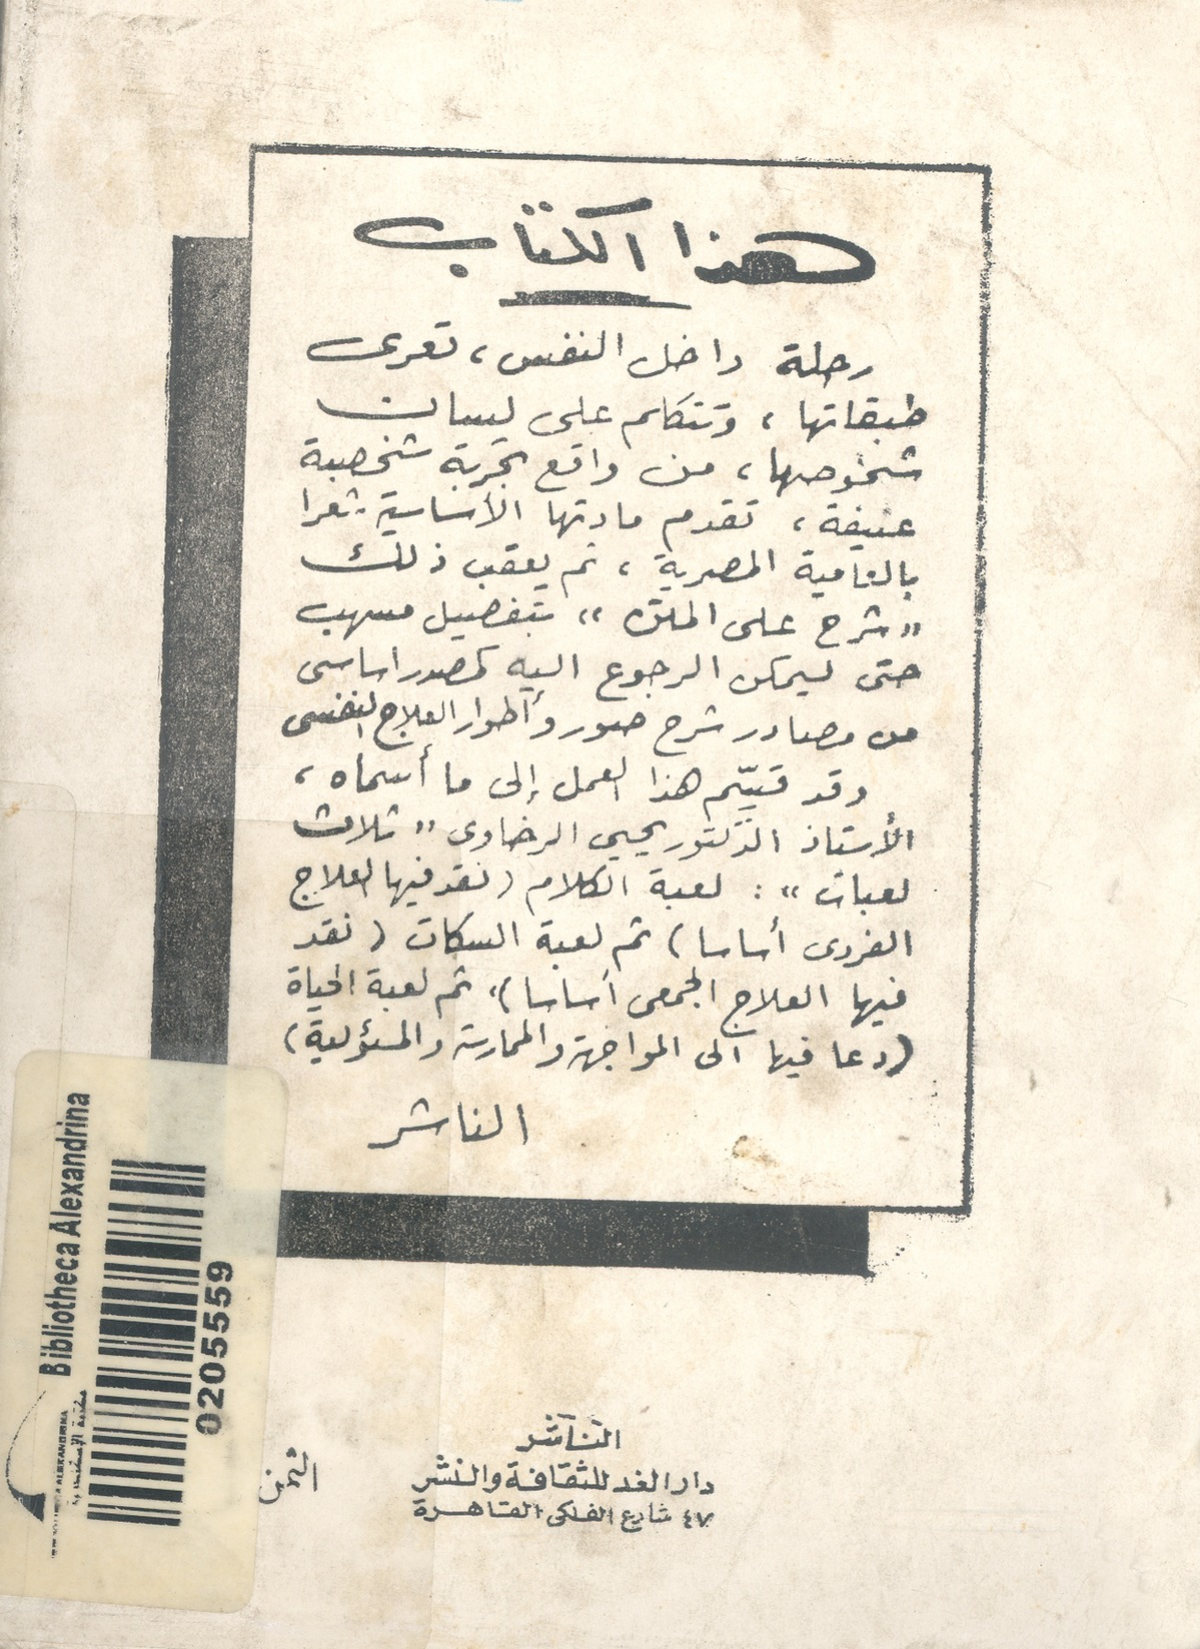 هذا الكتاب
رحلة داخل النفس ، تعرى
طبقاتها ، وتتكلم على لسان
شخوصها ، من واقع تجربة شخصية
عنيفة ، تقدم مادتها الأساسية شعرا
بالعامية المصرية ، ثم يعقب ذلك
" شرح على المتن " بتفصيل مسهب
حتى ليمكن الرجوع اليه كمصدر اساسى
من مصادر شرح صور وأطوار العلاج النفسى
وقد قسّم هذا العمل إلى ما أسماه ،
الأستاذ الدكتور يحيى الرخاوى " ثلاث
لعبات " : لعبة الكلام ( نقد فيها العلاج
الفردى أساسا ) ثم لعبة السكات ( نقد
فيها العلاج الجمعى أساسا ) ، ثم لعبة الحياة
( دعا فيها الى المواجهة والممارسة والمسؤلية )
الناشر
Bibliotheca Alexandrina
مكتبة الإسكندرية
0205559
الناشر
دار الغد للثقافة والنشر
٤٧ شارع الفلكى القاهرة
الثمن